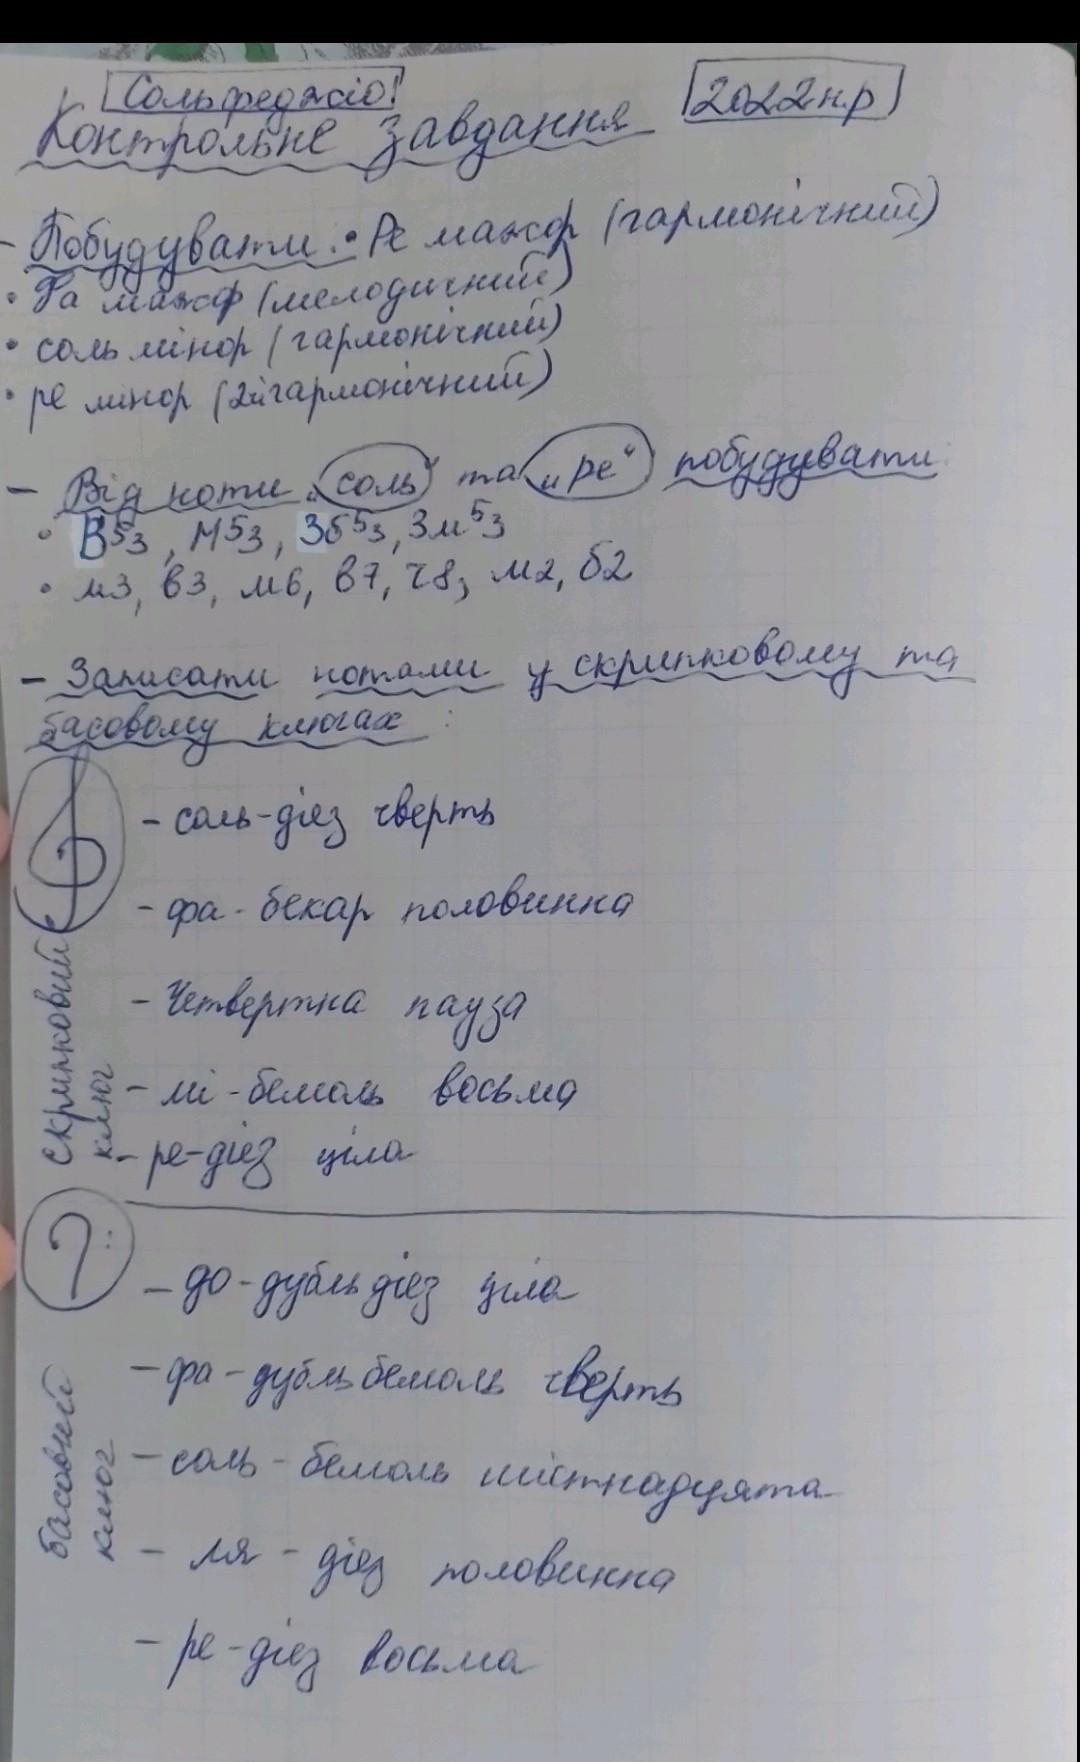 Сольфеджіо!
2022н.р
Контрольне завдання
- Побудувати: • Ре мажор (гармонічний)
• Фа мажор (мелодичний)
• соль мінор (гармонічний)
• ре мінор (2йгармонічний)
- Від ноти „соль“ та „ре“ побудувати:
• В53, М53, Зб53, Зм53
• м3, в3, м6, в7, ч8, м2, б2
- Записати нотами у скрипковому та
басовому ключах:
скрипковий ключ
- соль-дієз чверть
- фа-бекар половинна
- Четвертна пауза
- мі-бемоль восьма
- ре-дієз ціла
басовий ключ
- до-дубль дієз ціла
- фа-дубль бемоль чверть
- соль-бемоль шістнадцята
- ля-дієз половинна
- ре-дієз восьма